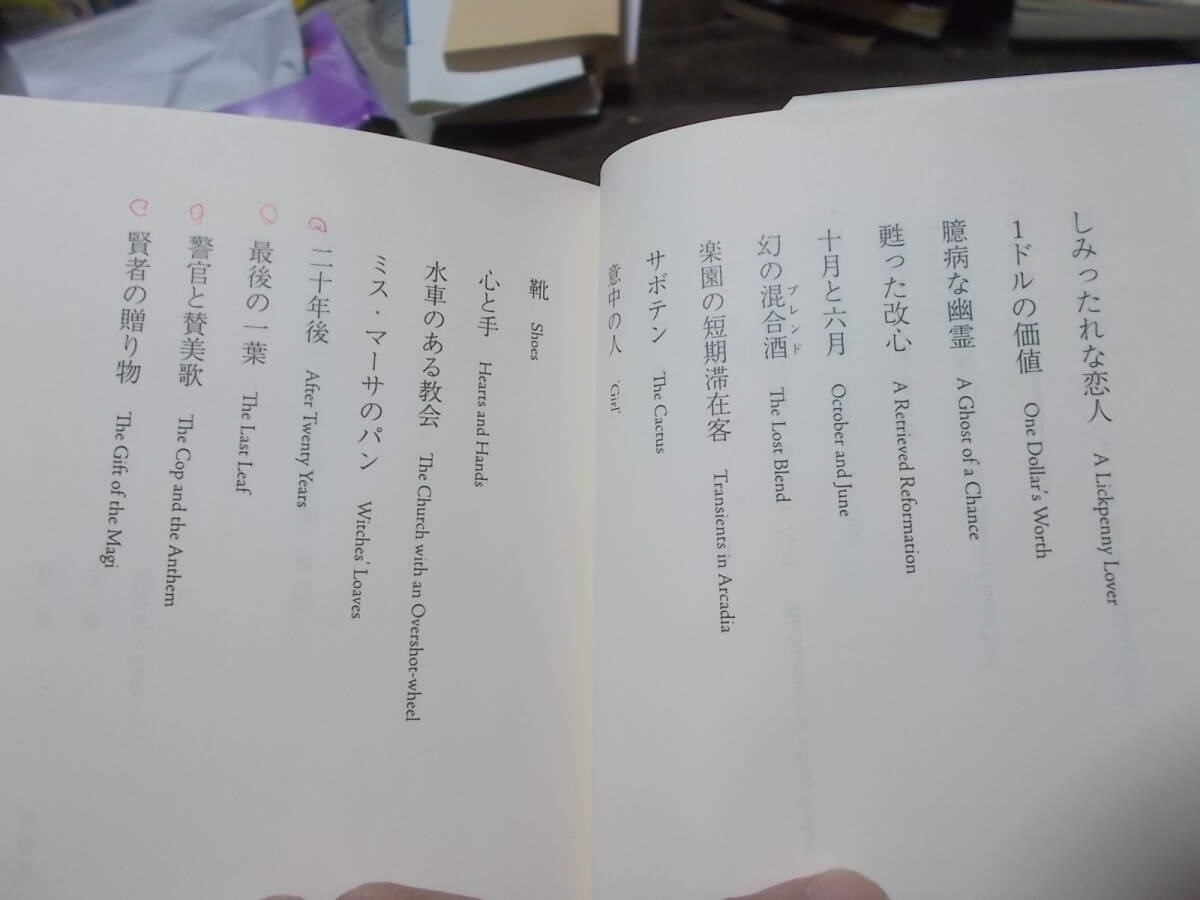 しみったれな恋人 A Lickpenny Lover
1ドルの価値 One Dollar's Worth
臆病な幽霊 A Ghost of a Chance
甦った改心 A Retrieved Reformation
十月と六月 October and June
幻の混合酒 ブレンド The Lost Blend
楽園の短期滞在客 Transients in Arcadia
サボテン The Cactus
意中の人 'Girl'
靴 Shoes
心と手 Hearts and Hands
水車のある教会 The Church with an Overshot-wheel
ミス・マーサのパン Witches' Loaves
二十年後 After Twenty Years
最後の一葉 The Last Leaf
警官と賛美歌 The Cop and the Anthem
賢者の贈り物 The Gift of the Magi